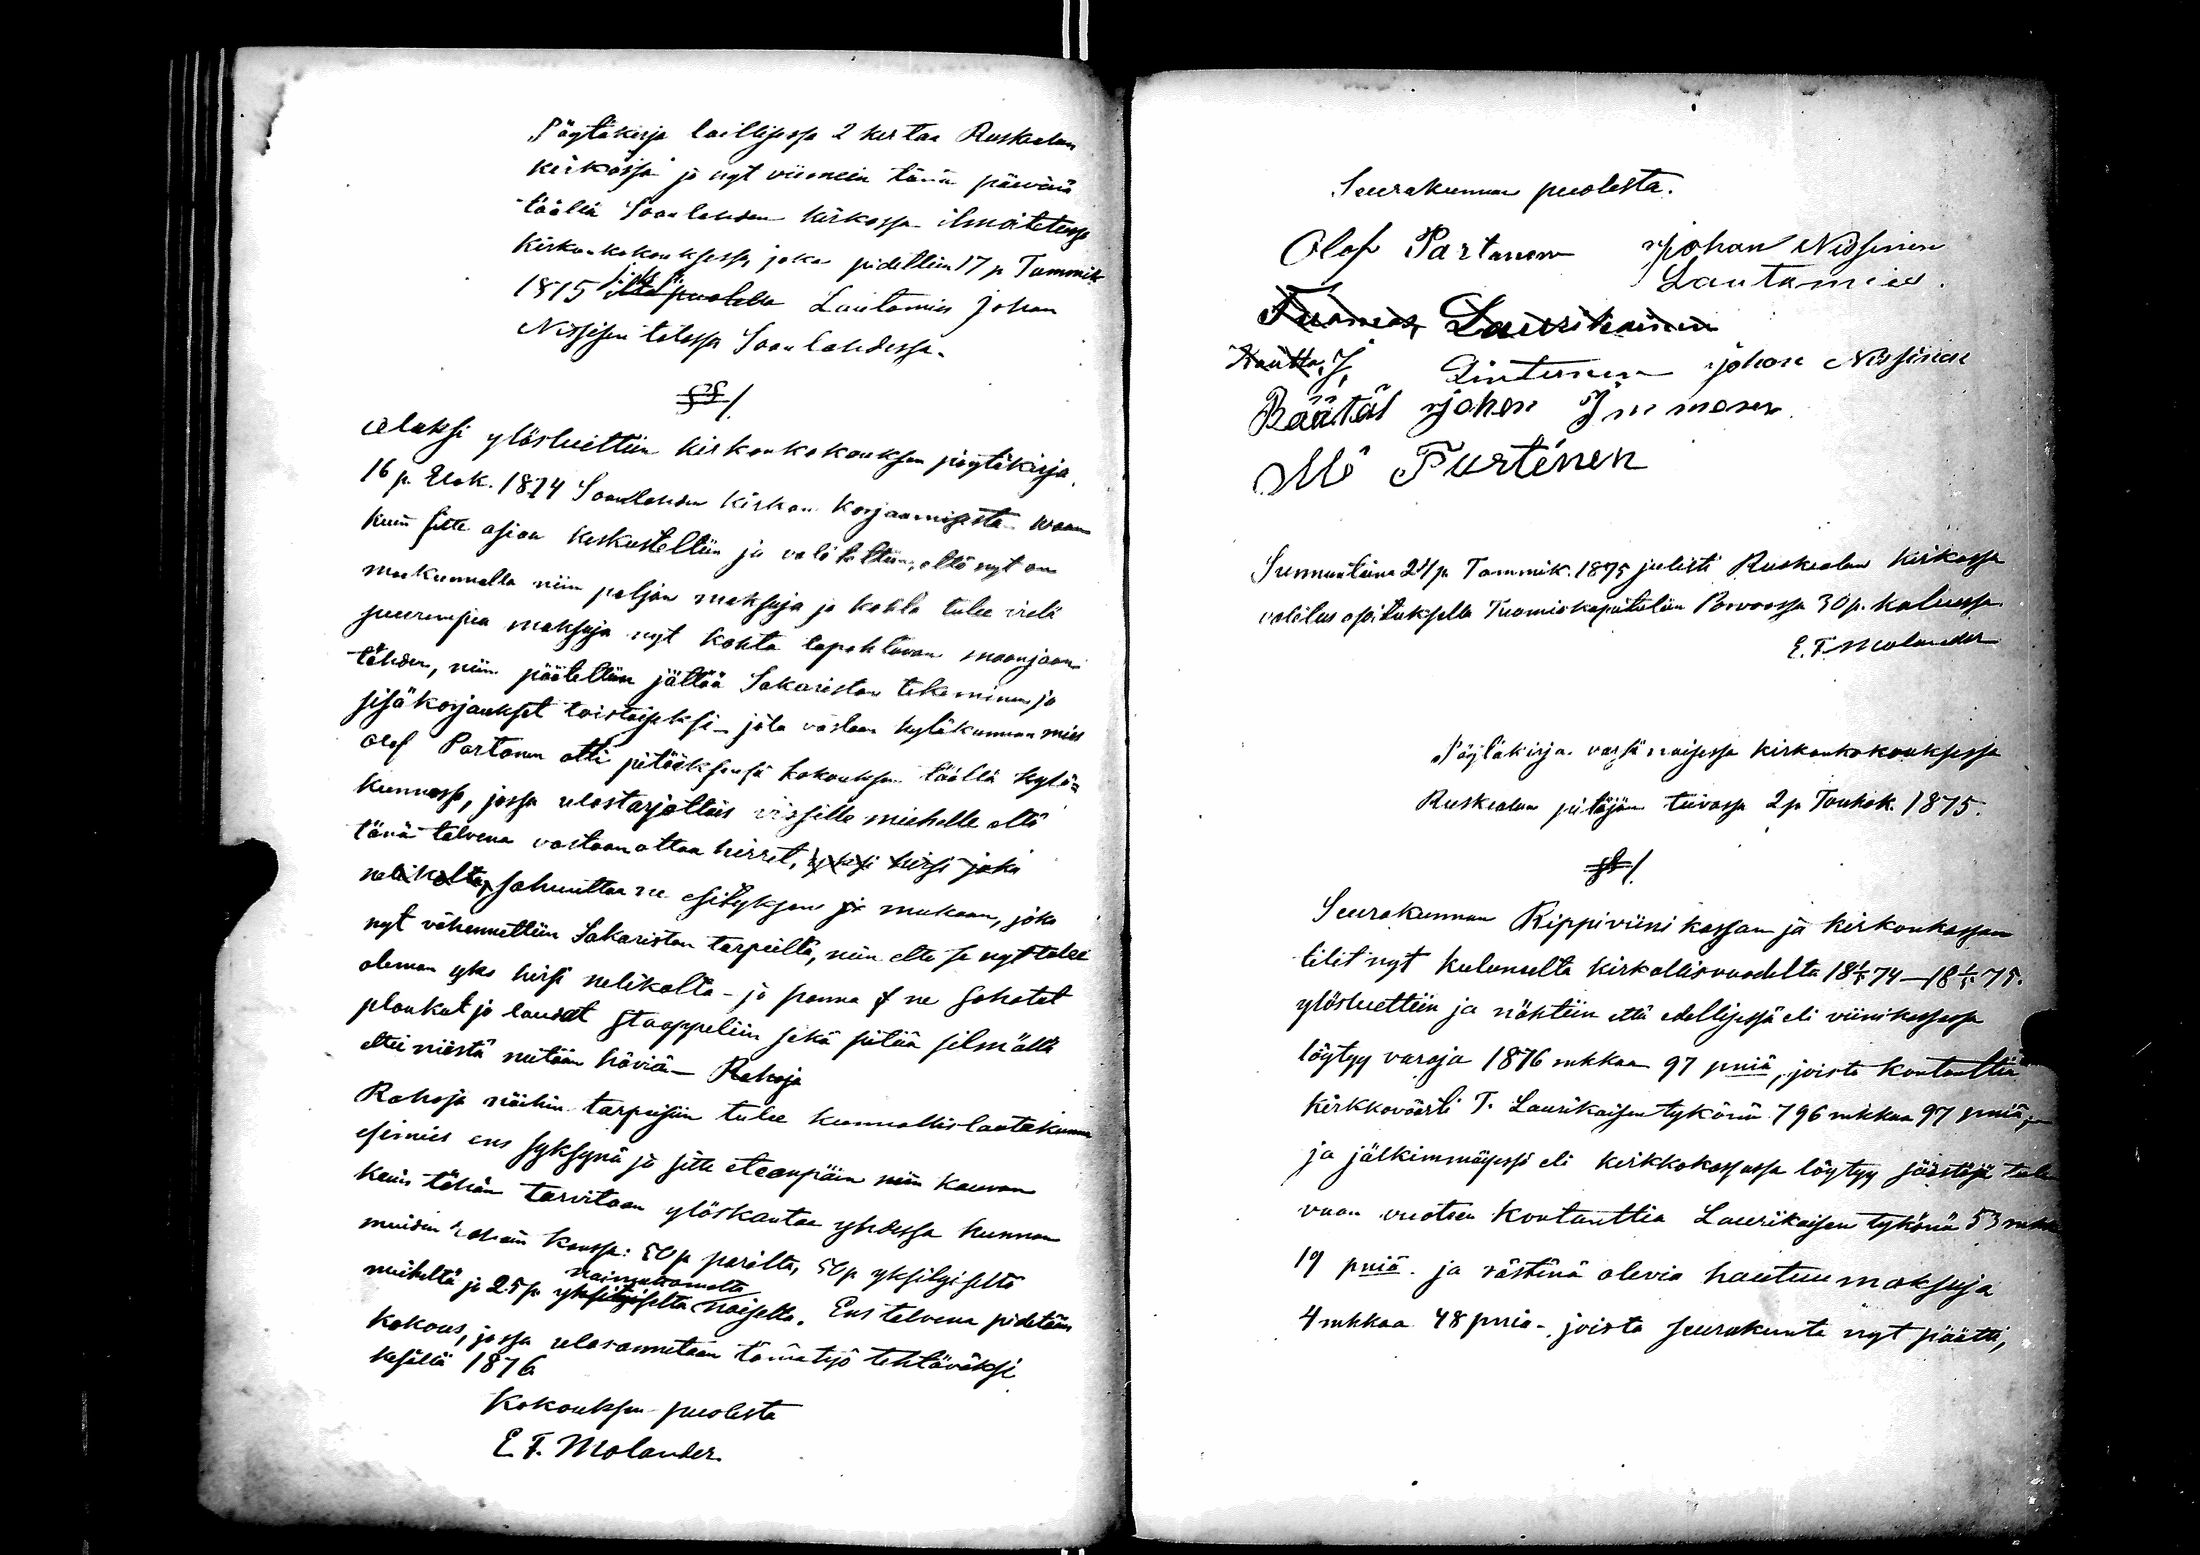 Pöytäkirja laillisessa 2 kertaa Ruskealan
kirkossa ja nyt viimein tänä päivänä
täällä Soanlahden kirkossa ilmoitetussa
kirkonkokouksessa, joka pidettiin 17 p Tammik.
1875 iltapuolella Lautamies Johan
Nissisen talossa Soanlahdessa.
§ 1.
Aluksi ylösluettiin kirkonkokouksen pöytäkirja
16 p. Elok. 1874 Soanlahden kirkon korjaamisesta waan
kuin sitte asiaa keskusteltiin ja valiteltiin, että nyt on
maakunnalla niin paljon maksuja ja kohta tulee vielä
suurempia maksuja nyt kohta tapahtuvan maanjaon
tähden, niin päätettiin jättää Sakariston tekeminen ja
sisäkorjaukset toistaiseksi – jota vastaan kyläkunnan mies
Olof Partanen otti pitääksensä kokouksen täällä kylä-
kunnassa, jossa ulostarjottais vissille miehelle että
tänä talvena vastaanottaa hirret, yksi hirsi joka
nelikolta, sahauttaa ne esityksen ja mukaan, joka
nyt vähennettiin Sakariston tarpeilla, niin että se nyt tulee
oleman yks hirsi nelikolta – ja panna ne sahatut
plankut ja laudat staappeliin sekä pitää silmällä
ettei niistä mitään häviä – Rahoja
Rahoja näihin tarpeisiin tulee kunnallislautakunnan
esimies ens syksynä ja sitte eteenpäin niin kauvan
kuin tähän tarvitaan ylöskantaa yhdessä kunnan
muiden rahain kanssa: 50 p parilta, 50 p yksityiseltä
naimattomalta
mieheltä ja 25 p yksityiseltä naiselta. Ens talvena pidetään
kokous, jossa ulosannetaan tämä työ tehtäväksi
kesällä 1876
Kokouksen puolesta
E. F. Molander.
Seurakunnan puolesta.
Olof Partanen Johan Nissinen
Lautamies.
Tuomas Laurikainen
J. Lintunen Johan Nissinen
Räätäl Johan Immonen
M Turtinen
Sunnuntaina 24 p. Tammik. 1875 julisti Ruskealan kirkossa
valitus osituksella Tuomiokapiteliin Porvoossa 30 p. kuluessa
E. F. Molander
Pöytäkirja varsinaisessa kirkonkokouksessa
Ruskealan pitäjän tuvassa 2 p Toukok. 1875.
§ 1.
Seurakunnan Rippiviini kassan ja kirkonkassan
tilit nyt kuluneelta kirkollisvuodelta 18 1/5 74 – 18 1/5 75.
ylösluettiin ja nähtiin että edellisessä eli viinikassassa
löytyy varoja 1876 mkkaa 97 pniä, joista kontanttia
kirkkoväärti T. Laurikaisen tykönä 796 mkkaa 97 pniä,
ja jälkimmäisessä eli kirkkokassassa löytyy säästöjä tule
vaan vuoteen kontanttia Laurikaisen tykönä 53 mkk
19 pniä. ja rästinä olevia hautuumaksuja
4 mkkaa 48 pniä – joista seurakunta nyt päätti,